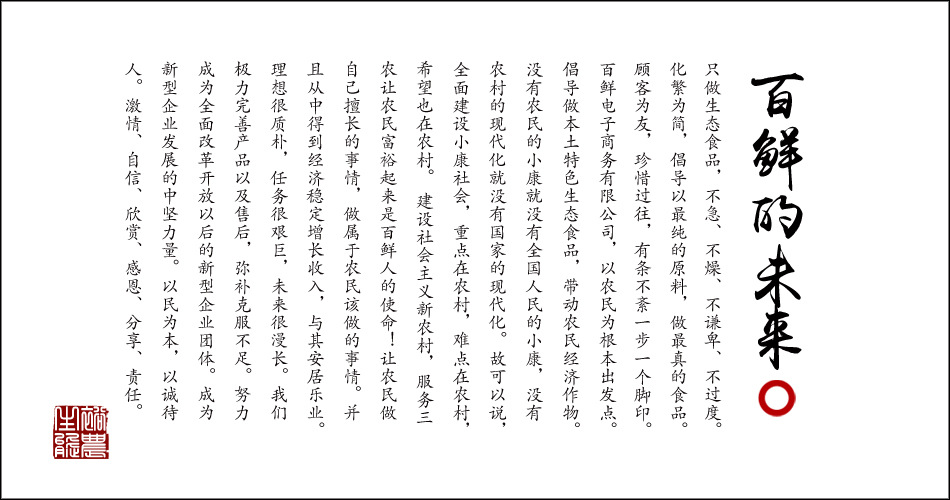 百鲜的未来
只做生态食品，不急、不燥、不谦卑、不过度。
化繁为简，倡导以最纯的原料，做最真的食品。
顾客为友，珍惜过往，有条不紊一步一个脚印。
百鲜电子商务有限公司，以农民为根本出发点。
倡导做本土特色生态食品，带动农民经济作物。
没有农民的小康就没有全国人民的小康，没有
农村的现代化就没有国家的现代化。故可以说，
全面建设小康社会，重点在农村，难点在农村，
希望也在农村。建设社会主义新农村，服务三
农让农民富裕起来是百鲜人的使命！让农民做
自己擅长的事情，做属于农民该做的事情。并
且从中得到经济稳定增长收入，与其安居乐业。
理想很质朴，任务很艰巨，未来很漫长。我们
极力完善产品以及售后，弥补克服不足。努力
成为全面改革开放以后的新型企业团体。成为
新型企业发展的中坚力量。以民为本，以诚待
人。激情、自信、欣赏、感恩、分享、责任。